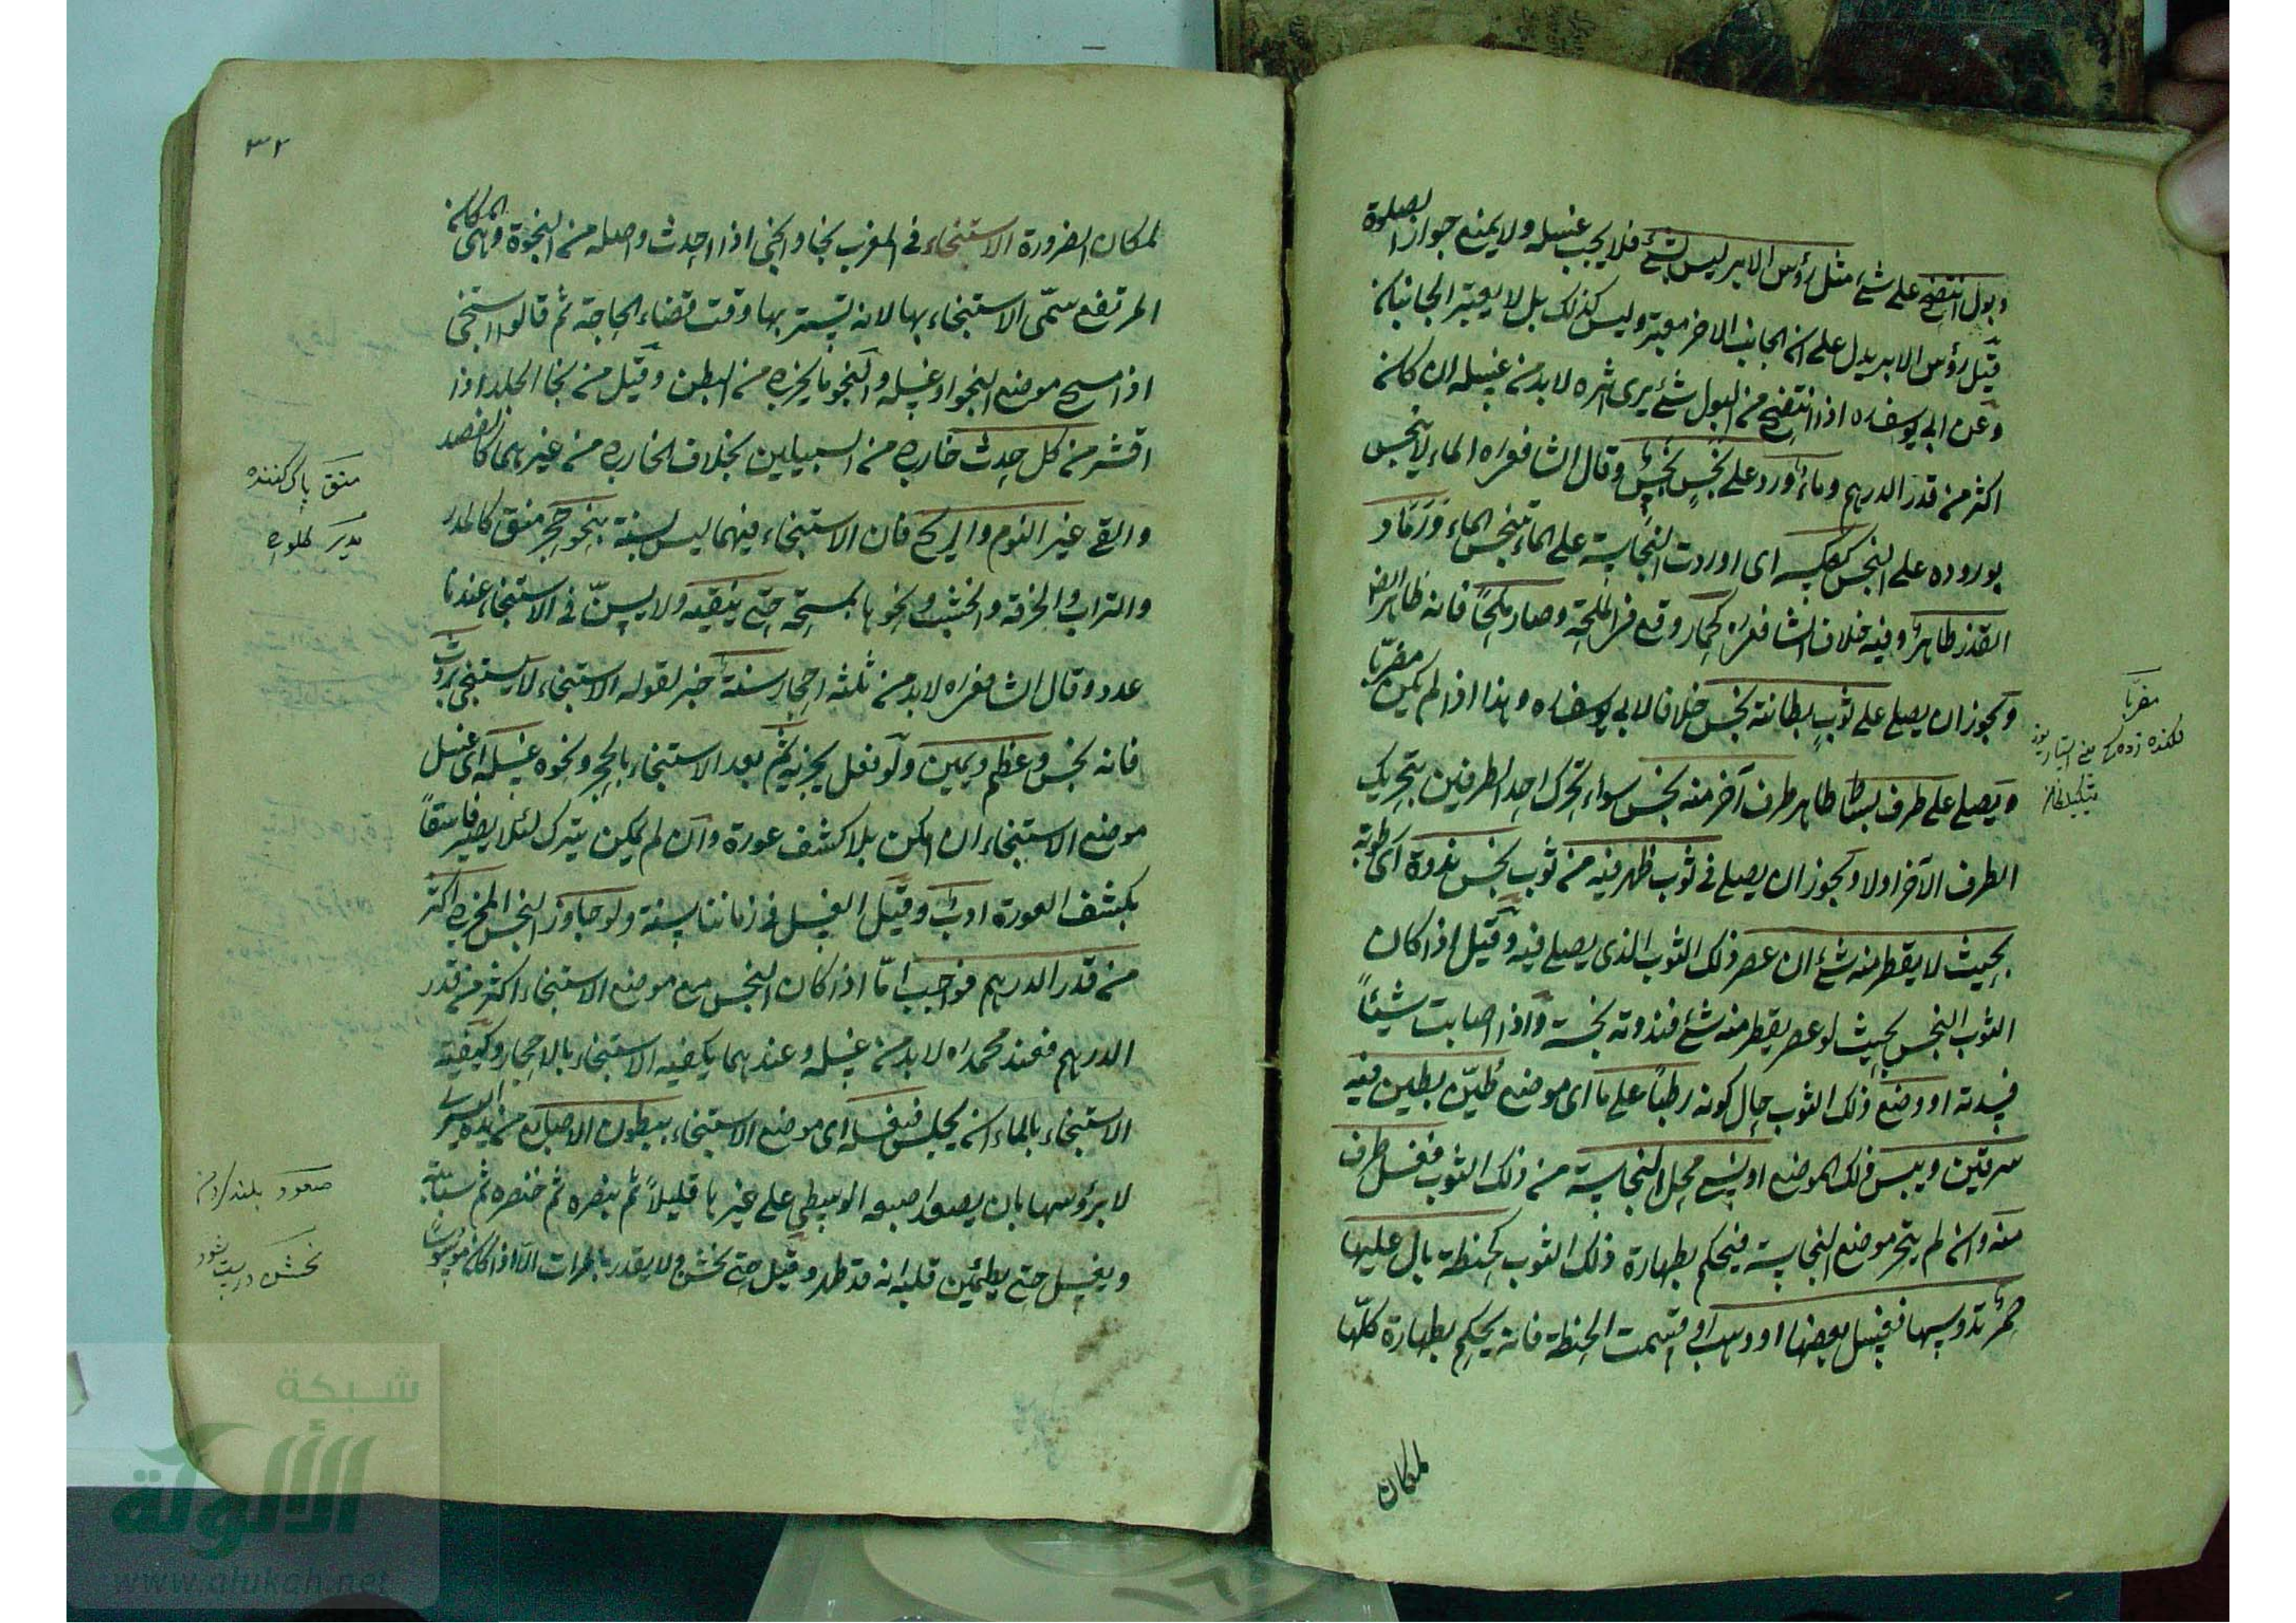 وبول انتضح على شئ مثل رؤس الابر ليس بشئ فلا يجب غسله ولا يمنع جواز الصلوة
قيل رؤس الابر يدل على ان الجانب الاخر معتبر وليس كذلك بل لا يعتبر الجانبان
وعن ابى يوسف ره اذا انتضح من البول شئ يرى اثره لا بد من غسله ان كان
اكثر من قدر الدرهم وماء ورد على نجس نجس وقال الشافعى ره الماء لا يتنجس
بوروده على النجس كعكسه اى اوردت النجاسة على الماء تنجس الماء ورماد
القذر طاهر وفيه خلاف الشافعى ره كحمار وقع فى المملحة وصار ملحا فانه طاهر ايضا
ويجوز ان يصلى على ثوب بطانته نجس خلافا لابى يوسف ره وهذا اذا لم يكن مضربا
ويصلى على طرف بساط طاهر طرف آخر منه نجس سواء تحرك احد الطرفين بتحريك
الطرف الآخر اولا ويجوز ان يصلى فى ثوب ظهر فيه من ثوب نجس ندوة اى رطوبة
بحيث لا يقطر منه شئ ان عصر ذلك الثوب الذى يصلى فيه وقيل اذا كان
الثوب النجس بحيث لو عصر يقطر منه شئ فندوته نجسة واذا اصابت شيئا
فسدته او وضع ذلك الثوب حال كونه رطبا على ما اى موضع طين بطين فيه
سرقين ويبس ذلك الموضع او نسى محل النجاسة من ذلك الثوب فغسل طرف
منه وان لم يتحر موضع النجاسة فيحكم بطهارة ذلك الثوب كحنطة بال عليها
حمر تدوسها فغسل بعضها او وهب او قسمت الحنطة فانه يحكم بطهارة كلها
لمكان
مضربا
٣٢
لمكان الضرورة الاستنجاء فى المغرب نجا وانجى اذا احدث واصله من النجوة وهى المكان
المرتفع سمى الاستنجاء بها لانه يتستر بها وقت قضاء الحاجة ثم قالوا استنجى
اذا مسح موضع النجو او غسله والنجو ما يخرج من البطن وقيل من نجا الجلد اذا
اقشر من كل حدث خارج من السبيلين بخلاف الخارج من غيرهما كالفصد
والقى غير النوم والريح فان الاستنجاء فيهما ليس بسنة بنحو حجر منق كالمدر
والتراب والخرقة والخشب ونحوها يمسحه حتى ينقيه ولا يسن فى الاستنجاء عندنا
عدد وقال الشافعى ره لا بد من ثلثة احجار سنة خبر لقوله الاستنجاء لا يستنجى بروث
فانه نجس وعظم ويمين ولو فعل يجزيه ثم بعد الاستنجاء بالحجر ونحوه غسله اى غسل
موضع الاستنجاء ان امكن بلا كشف عورة وان لم يمكن يترك لئلا يصير فاسقا
بكشف العورة ادب وقيل الغسل فى زماننا سنة ولو جاوز النجس المخرج اكثر
من قدر الدرهم فواجب اما اذا كان النجس مع موضع الاستنجاء اكثر من قدر
الدرهم فعند محمد ره لا بد من غسله وعندهما يكفيه الاستنجاء بالاحجار وكيفية
الاستنجاء بالماء ان يجلس فيغسله اى موضع الاستنجاء ببطون الاصابع من يده اليسرى
لا برؤسها بان يصعد اصبعه الوسطى على غيرها قليلا ثم بنصره ثم خنصره ثم سبابته
ويغسل حتى يطمئن قلبه انه قد طهر وقيل حتى يخشن ولا يقدر بالمرات الا اذا كان موسوسا
منق پاك كننده
مدر كلوخ
صعود بلند
شبكة
الألوكة
www.alukah.net